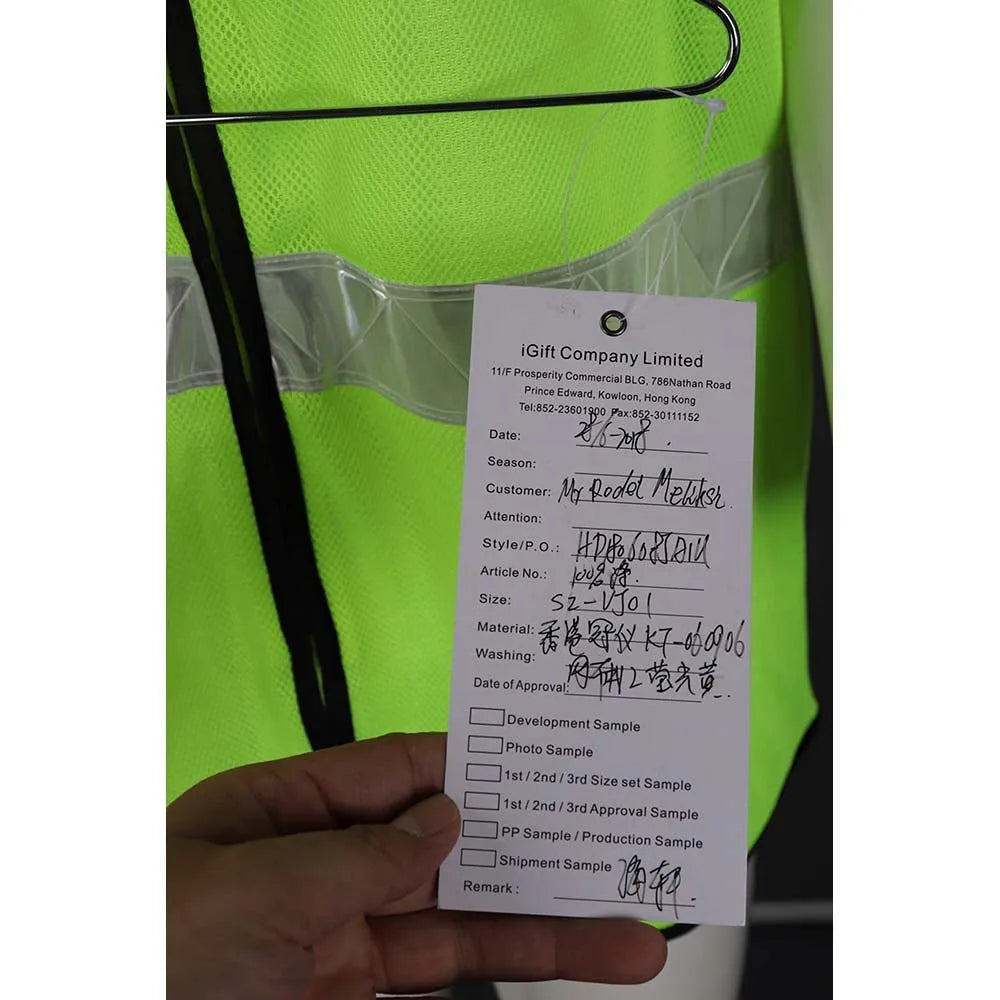 iGift Company Limited
11/F Prosperity Commercial BLG, 786Nathan Road
Prince Edward, Kowloon, Hong Kong
Tel:852-23601900 Fax:852-30111152
Date: 28/6-2018.
Season:
Customer: Mr Rodel
Attention:
Style/P.O.:
Article No.: 100%涤.
Size: SZ-VJ01
Material: 香港冠仪 KT-060906
Washing: 荧光黄..
Date of Approval:
Development Sample
Photo Sample
1st / 2nd / 3rd Size set Sample
1st / 2nd / 3rd Approval Sample
PP Sample / Production Sample
Shipment Sample
Remark :